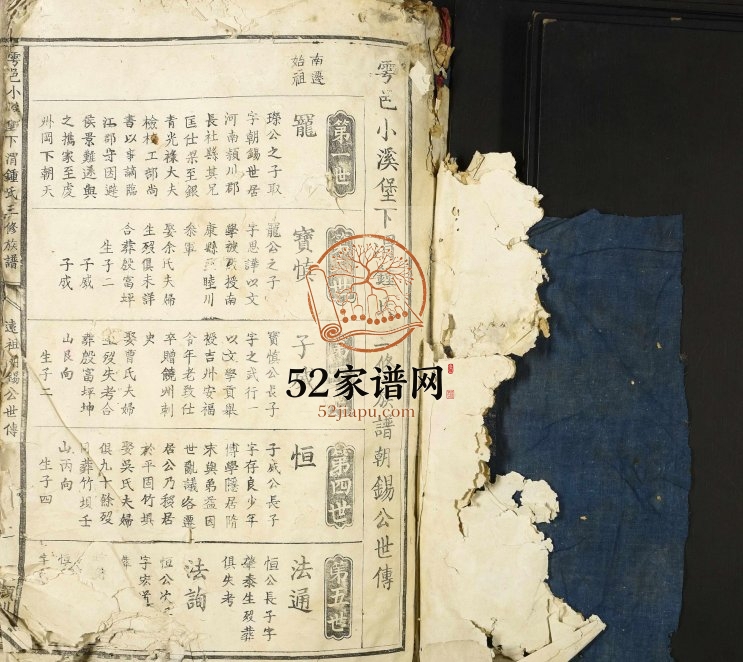 雩邑小溪堡下渭鍾氏三修族譜朝錫公世傳
南遷
始祖
第一世
寵
璨公之子取
字朝錫世居
河南潁川郡
長社縣其兄
匡仕梁至銀
青光祿大夫
檢校工部尚
書以事謫臨
江郡守因避
侯景難遂與
之攜家至虔
州岡下朝天
寶慎
寵公之子
字思謹以文
學徵辟授南
康縣
參軍
娶余氏夫婦
生歿俱未詳
合葬殷富坪
生子二
子威
子成
子
寶慎公長子
字之武行一
以文學貢舉
授吉州安福
令年老致仕
卒贈饒州刺
史
娶曹氏夫婦
生歿失考合
葬殷富坪坤
山艮向
生子二
第四世
恒
子威公長子
字存良少年
博學隱居隋
末與弟益因
世亂議各遷
居公乃移居
於平固竹壩
娶吳氏夫婦
俱九十餘歿
同葬竹壩壬
山丙向
生子四
第五世
法通
恒公長子字
肇泰生歿葬
俱失考
法詢
恒公次
字宏
雩邑小溪堡下渭鍾氏三修族譜
遠祖朝錫公世傳
52家谱网
52jiapu.com